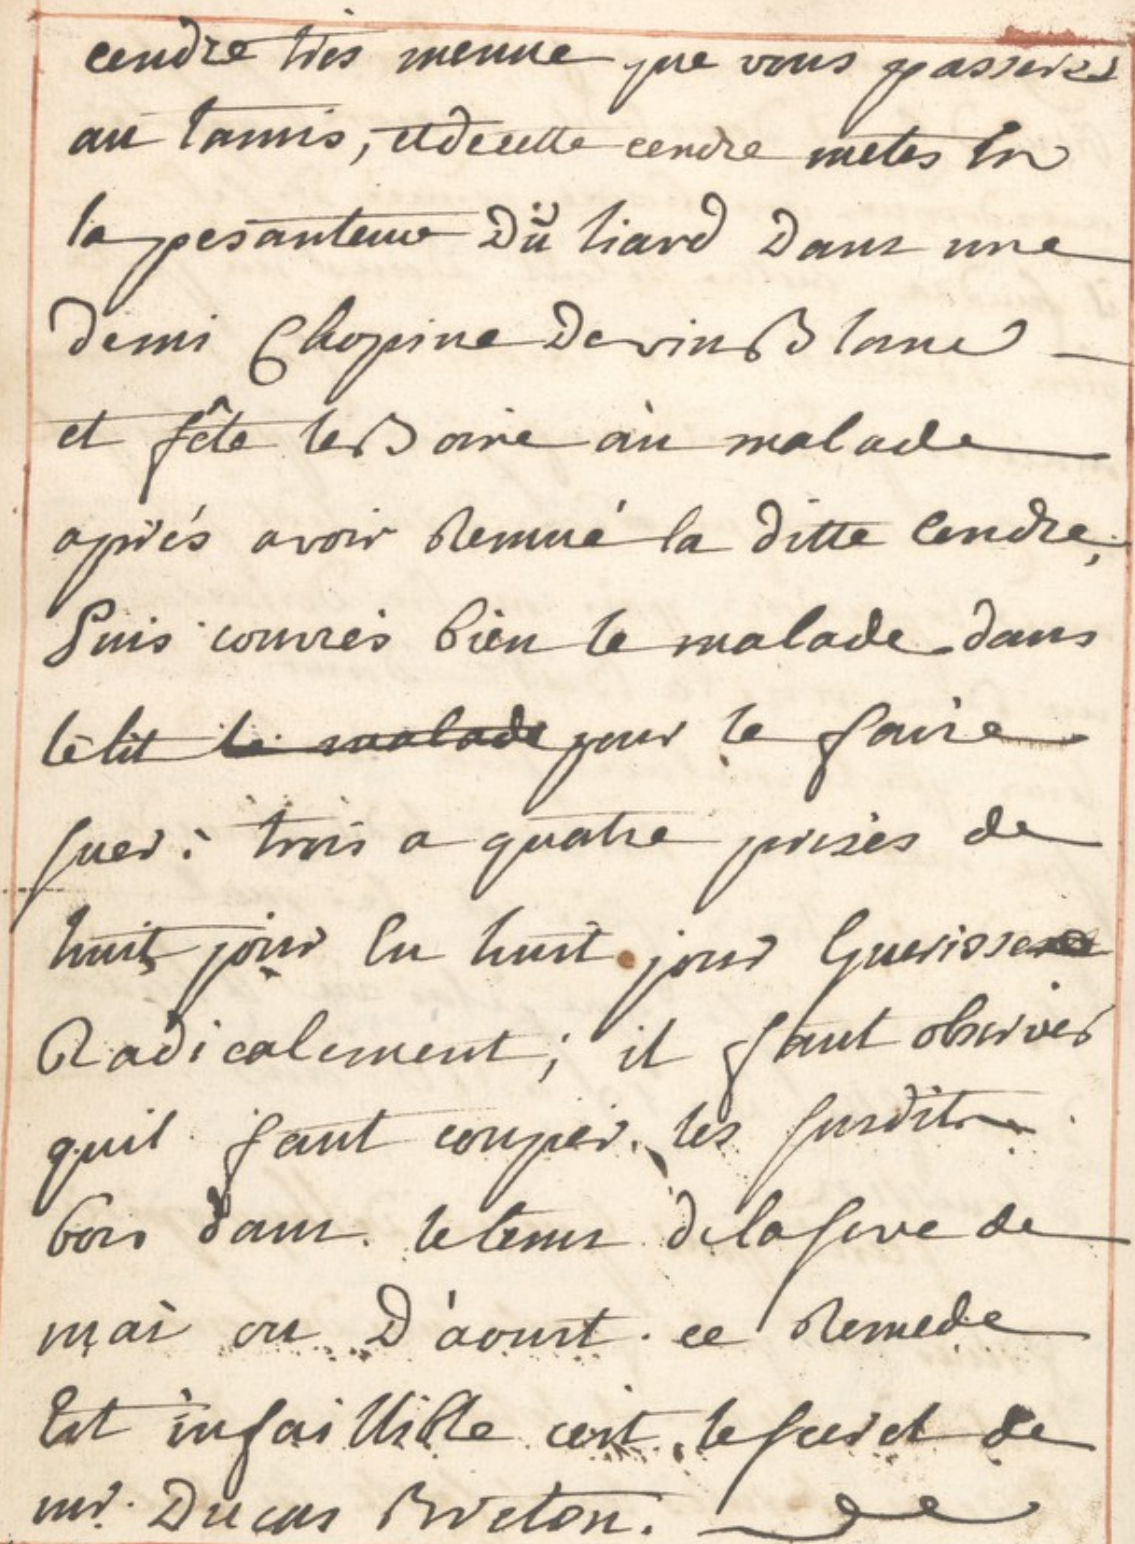 cendre très menue que vous passerés
au tamis, et de cette cendre metes En
la pesanteur Dü liard Dans une
demi Chopine De vin Blanc
et féte le Boire au malade
aprés avoir Remué la ditte Cendre,
Puis couvrés bien le malade dans
le lit le malade pour le faire
suer: trois a quatre prises de
huit jour En huit jour Guerissent
Radicalement; il faut observer
quil faut couper les susdits
bois dans le tems de la seve de
mai ou D'aoust. ce Remede
Est infaillible cest le secret de
mr. Ducas Breton.